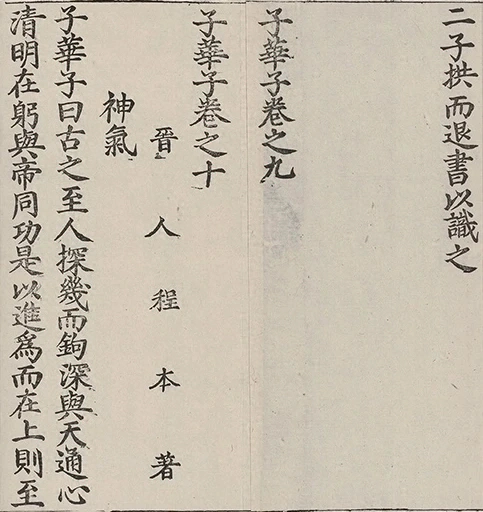 二子拱而退書以識之
子華子卷之九
子華子卷之十
晉人程本著
神氣
子華子曰古之至人探幾而鉤深與天通心
清明在躬與帝同功是以進爲而在上則至